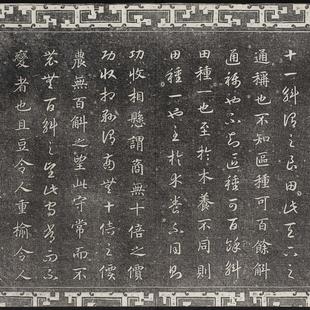 十一斛謂之良田此天下之
通稱也不知區種可百餘斛
通稱也不知區種可百餘斛
田種一也至於木養不同則
田種一也至於木養不同則
功收相懸謂商無十倍之價
功收相懸謂商無十倍之價
農無百斛之望此守常而不
農無百斛之望此守常而不
變者也且豆令人重榆令人